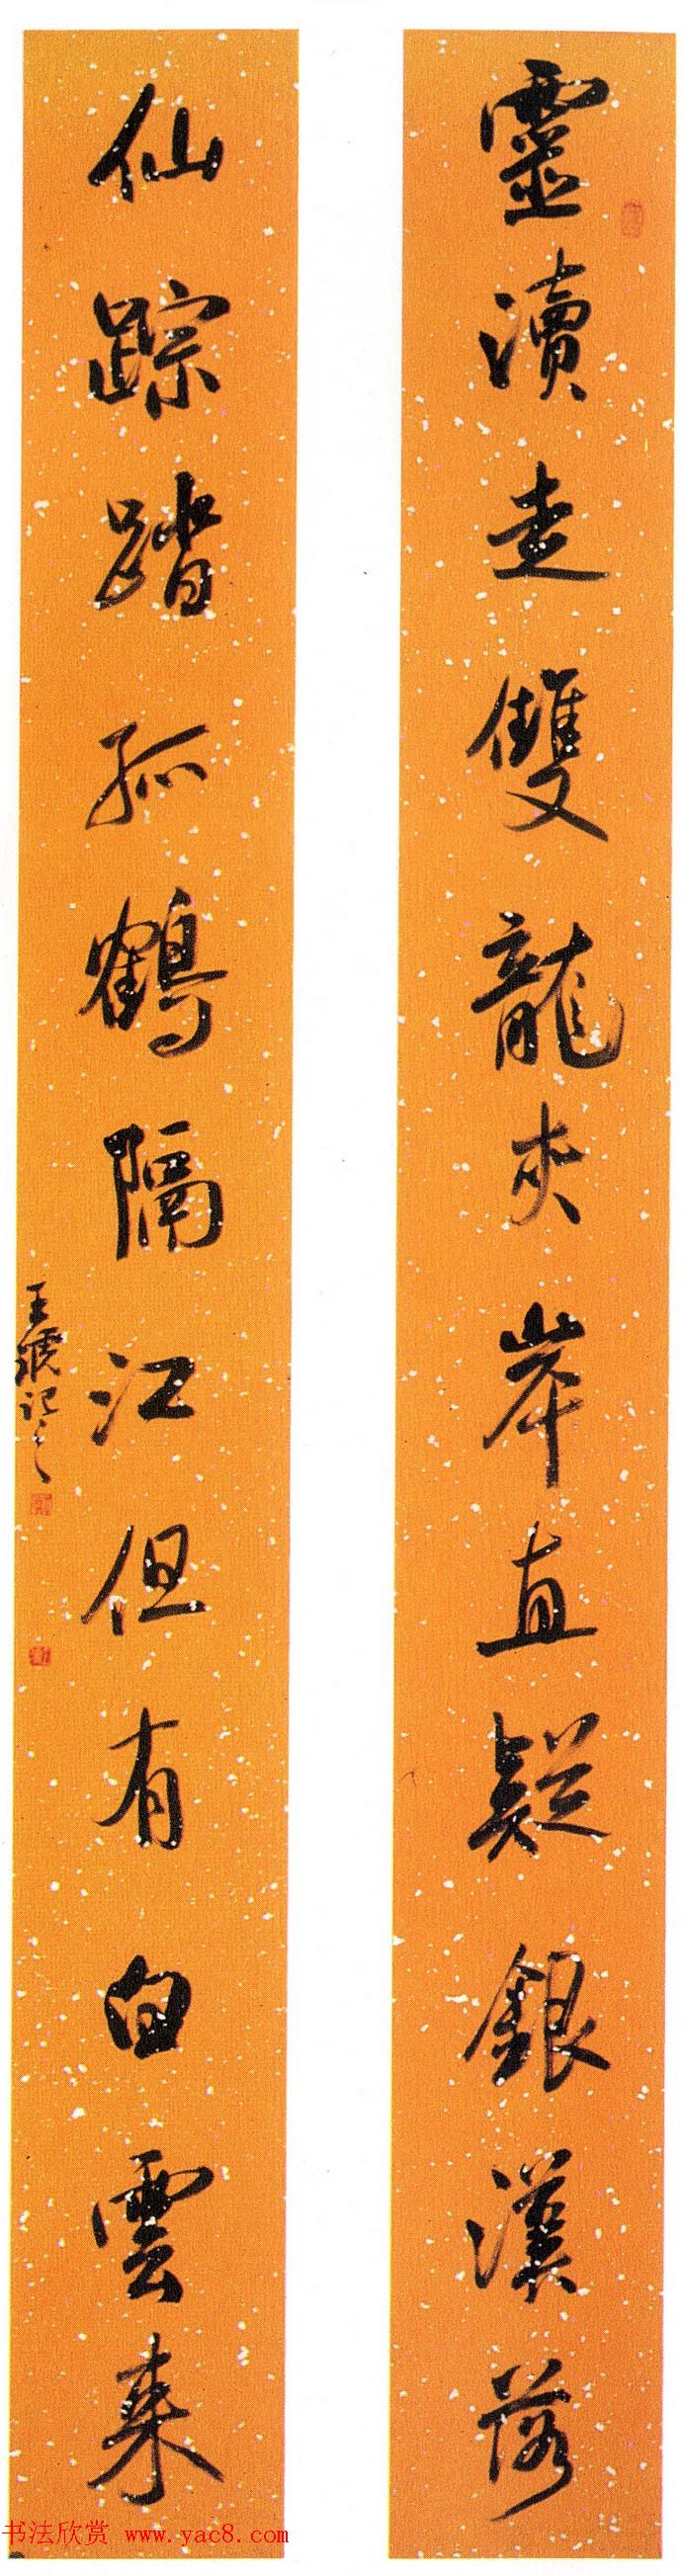 靈瀆走雙龍夾岸直疑銀漢落
仙踪踏孤鶴隔江但有白雲来
王琥記之
书法欣赏 www.yac8.com